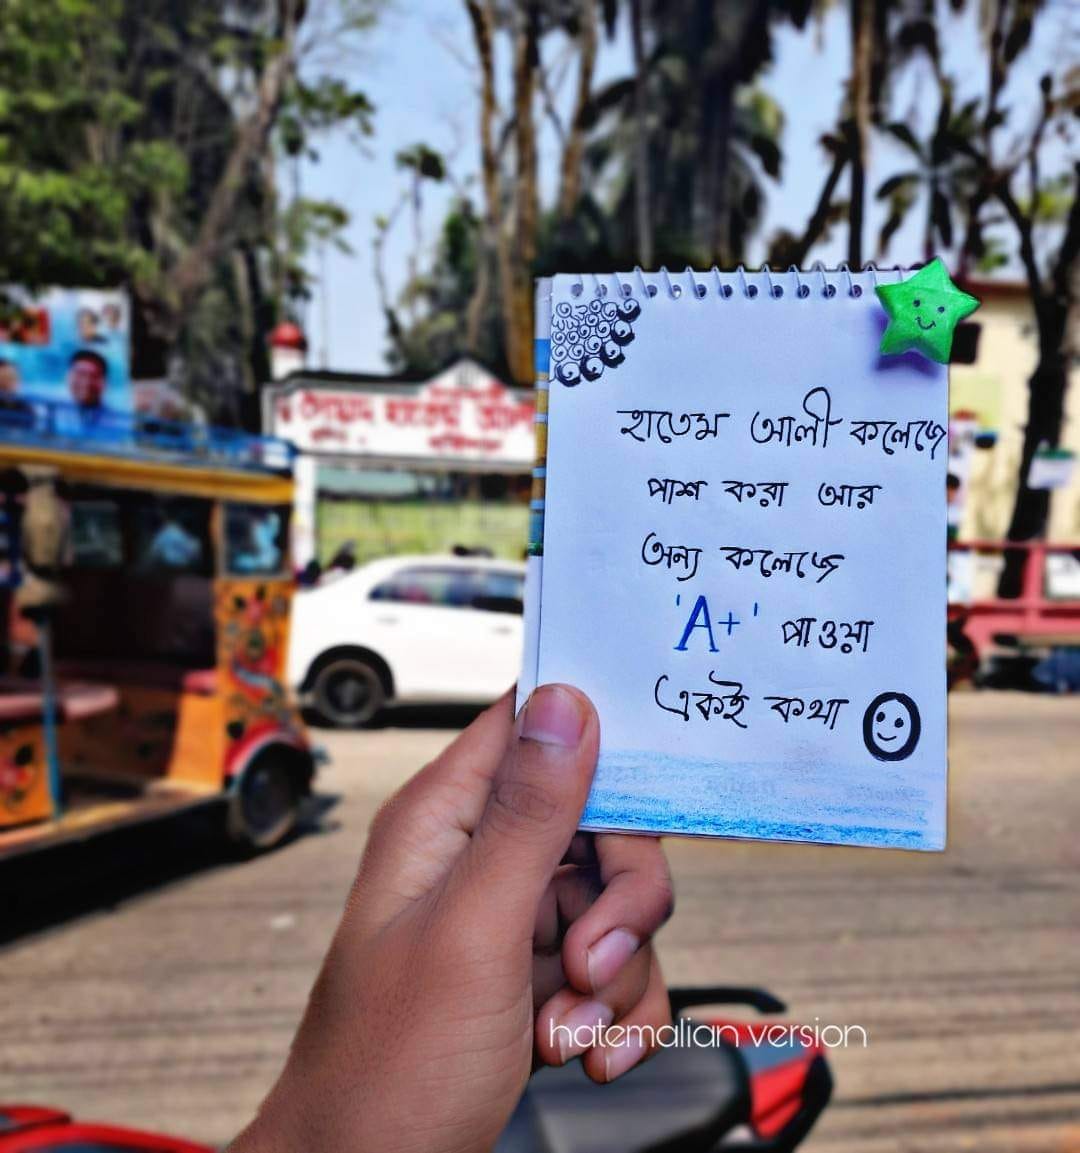 হাতেম আলী কলেজে
পাশ করা আর
অন্য কলেজে
'A+' পাওয়া
একই কথা
hatemalian version